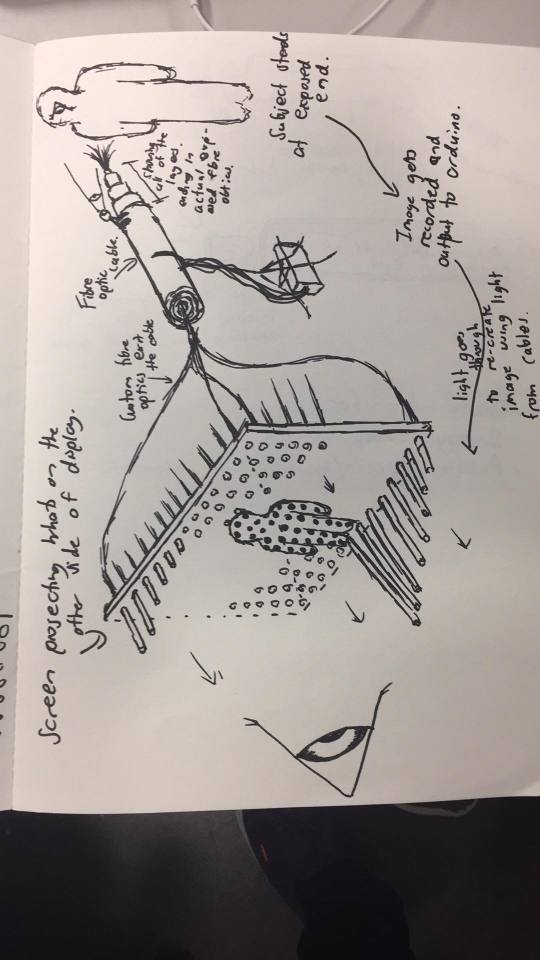 Subject stands
at exposed
end.
Image gets
recorded and
output to arduino.
light goes
through
to re-create
image using light
from
cables.
Showing
all of the
layers.
ending in
actual exp-
osed fibre
optics.
Fibre
optic
cable.
Custom fibre
optics exit
the cable
Screen projecting whats on the
other side of display.